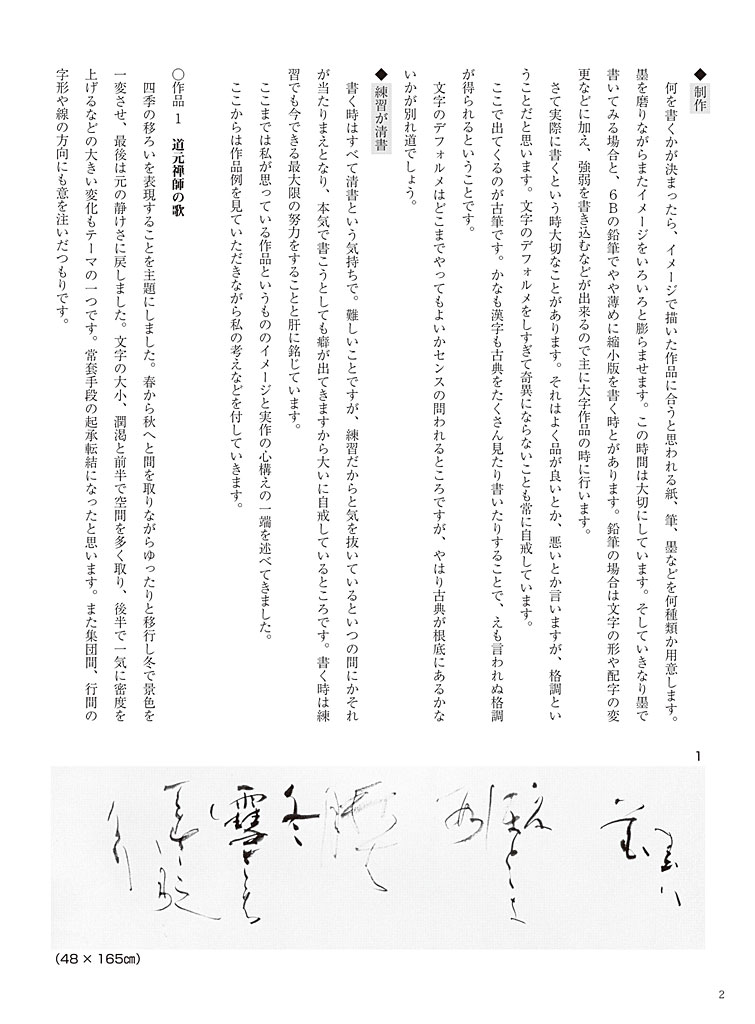 ◆制作
何を書くかが決まったら、イメージで描いた作品に合うと思われる紙、筆、墨などを何種類か用意します。
墨を磨りながらまたイメージをいろいろと膨らませます。この時間は大切にしています。そしていきなり墨で
書いてみる場合と、６Ｂの鉛筆でやや薄めに縮小版を書く時とがあります。鉛筆の場合は文字の形や配字の変
更などに加え、強弱を書き込むなどが出来るので主に大字作品の時に行います。
さて実際に書くという時大切なことがあります。それはよく品が良いとか、悪いとか言いますが、格調とい
うことだと思います。文字のデフォルメをしすぎて奇異にならないことも常に自戒しています。
ここで出てくるのが古筆です。かなも漢字も古典をたくさん見たり書いたりすることで、えも言われぬ格調
が得られるということです。
文字のデフォルメはどこまでやってもよいかセンスの問われるところですが、やはり古典が根底にあるかな
いかが別れ道でしょう。
◆練習が清書
書く時はすべて清書という気持ちで。難しいことですが、練習だからと気を抜いているといつの間にかそれ
が当たりまえとなり、本気で書こうとしても癖が出てきますから大いに自戒しているところです。書く時は練
習でも今できる最大限の努力をすることと肝に銘じています。
ここまでは私が思っている作品というもののイメージと実作の心構えの一端を述べてきました。
ここからは作品例を見ていただきながら私の考えなどを付していきます。
〇作品１　道元禅師の歌
四季の移ろいを表現することを主題にしました。春から秋へと間を取りながらゆったりと移行し冬で景色を
一変させ、最後は元の静けさに戻しました。文字の大小、潤渇と前半で空間を多く取り、後半で一気に密度を
上げるなどの大きい変化もテーマの一つです。常套手段の起承転結になったと思います。また集団間、行間の
字形や線の方向にも意を注いだつもりです。
1
冬
雪
（48 × 165㎝）
2